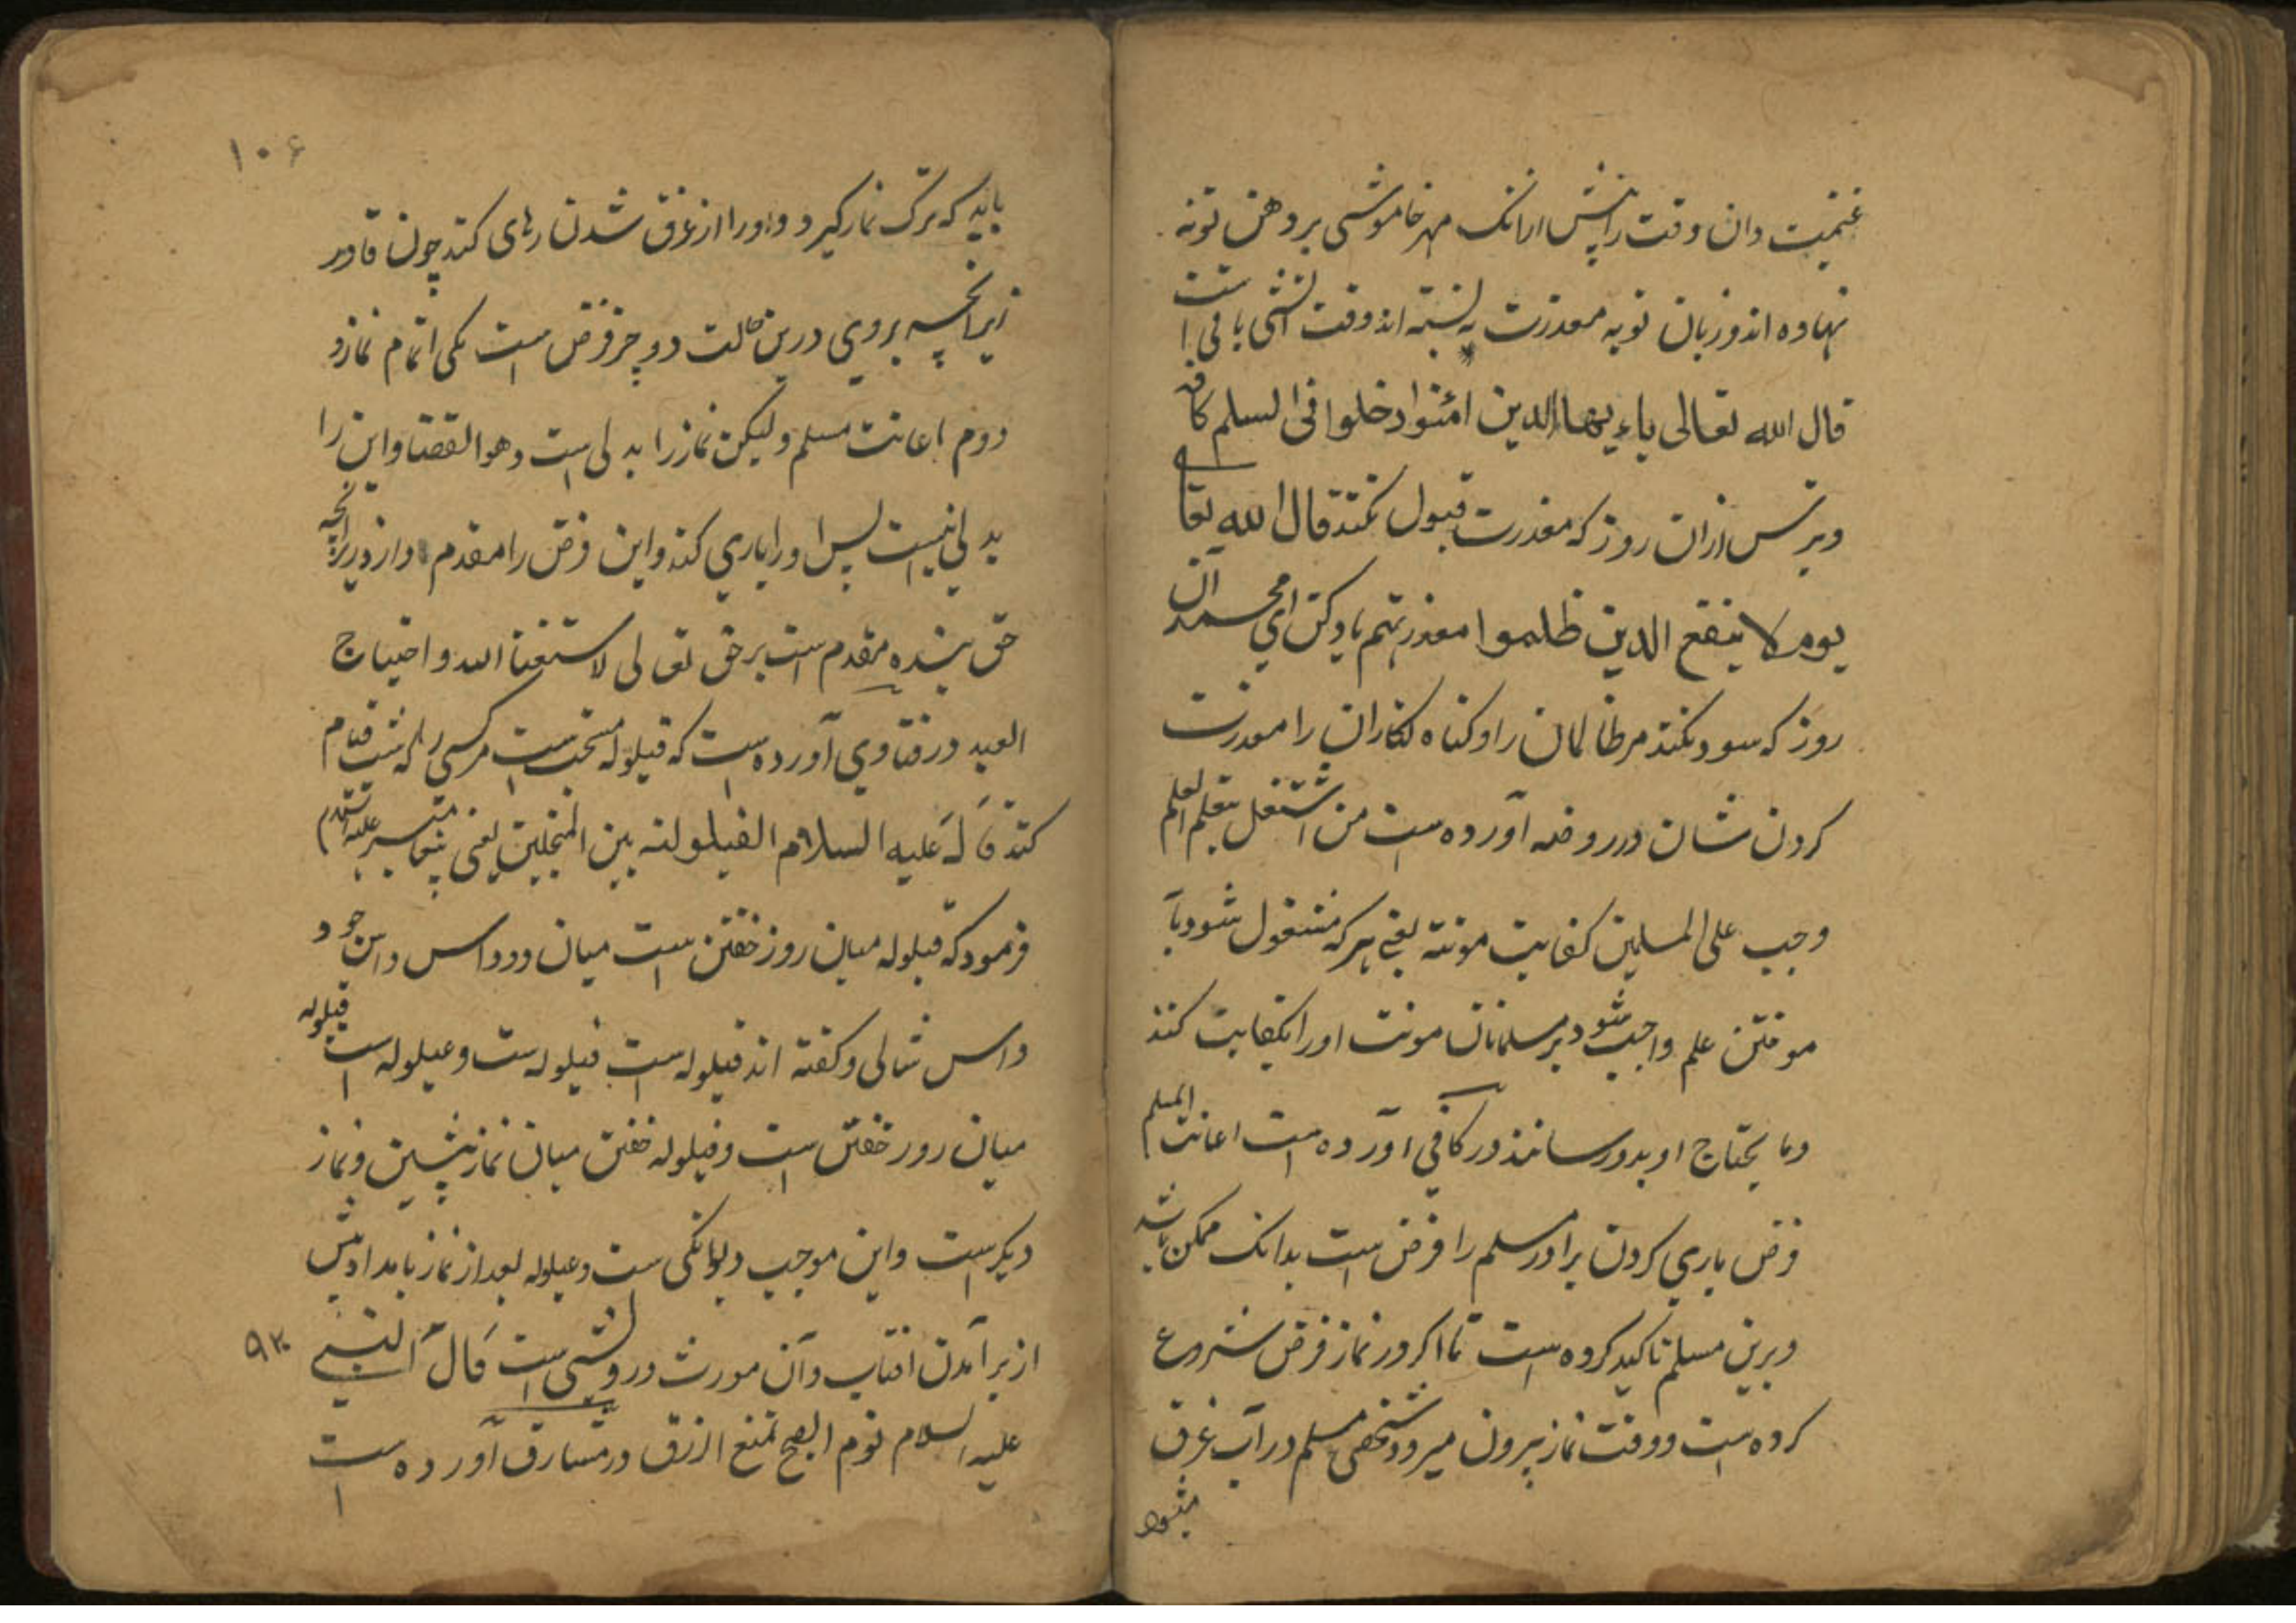 غنیمت دان وقت را پیش ازانک مهر خاموشی بر دهن تو نه
نهاده اند و زبان تو به معذرت نه بسته اند وقت آشتی باقی است
قال الله تعالی یاءیها الذین امنوا ادخلوا فی السلم کافه
و بترس ازان روز که معذرت قبول نکنند قال الله تعالی
یوم لا ینفع الذین ظلموا معذرتهم یاد کن ای محمد آن
روز که سود نکند مر ظالمان را و کناه کاران را معذرت
کردن شان در روضه آورده است من اشتغل بتعلم العلم
وجب علی المسلمین کفایت مونته یعنی هر که مشغول شود بآ
موختن علم واجب شود بر مسلمانان مونت او را بکفایت کنند
و ما یحتاج او بدو رسانند در کافی آورده است اعانت المسلم
فرض یاری کردن برادر مسلم را فرض است بدانک ممکن باشد
و برین مسلم تاکید کرده است تا اکر در نماز فرض شروع
کرده است و وقت نماز بیرون میرود شخصی مسلم در آب غرق
میشود
۱۰۶
باید که ترک نماز کیرد و او را از غرق شدن رهای کند چون قادر
زیرانچه بروی درین حالت دو چیز فرض است یکی اتمام نماز و
دوم اعانت مسلم ولیکن نماز را بدلی است و هو القضا و این را
بدلی نیست پس او را یاری کند و این فرض را مقدم دارد زیرانچه
حق بنده مقدم است بر حق تعالی لاستغناء الله و احتیاج
العبد در فتاوی آورده است که قیلوله مستحب است مر کسی را که شب قیام
کند قال علیه السلام القیلولته بین المنجلین یعنی پیغامبر علیه السلام
فرمود که قیلوله میان روز خفتن است میان دو داس داس جو و
داس شالی و کفته اند قیلوله است فیلوله ست و عیلوله است قیلوله
میان روز خفتن است و فیلوله خفتن میان نماز پیشین و نماز
دیکر است و این موجب دیوانکی ست و عیلوله بعد از نماز بامداد پیش
از بر آمدن افتاب و آن مورث درویشی است قال النبی
۹۳
علیه السلام نوم الصبح تمنع الرزق در مشارق آورده است